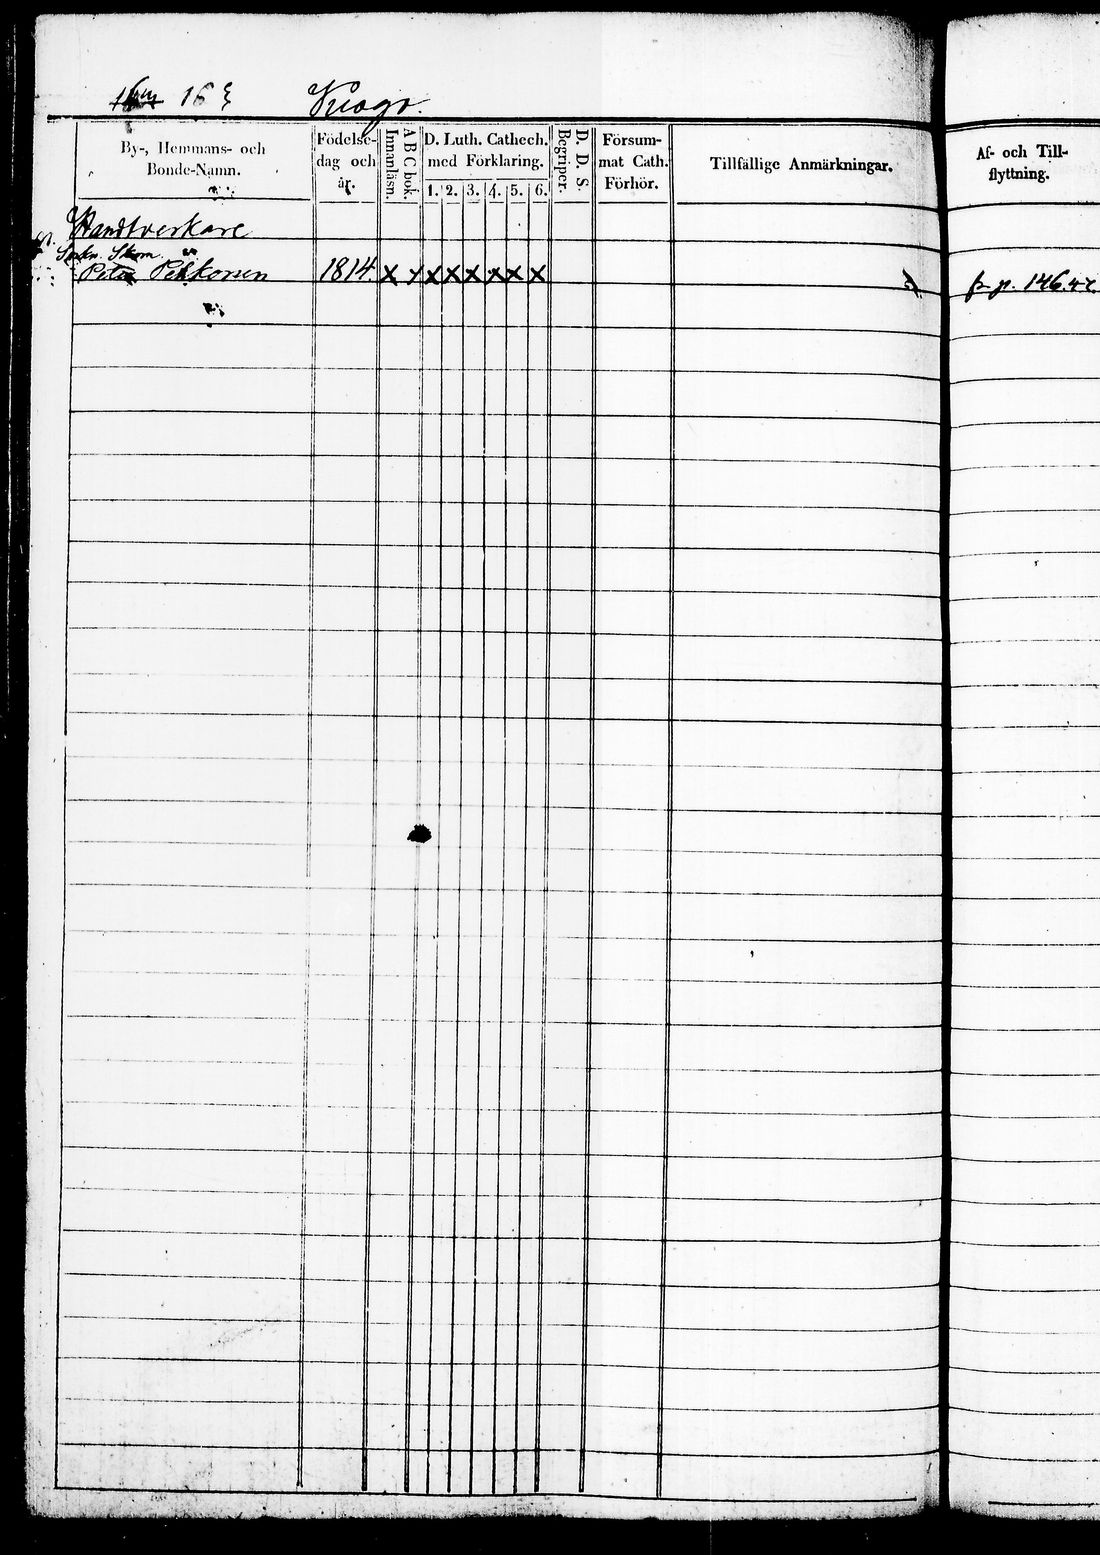 16
Kuogo.
By-, Hemmans- och Bonde-Namn.
Födelse-dag och år.
Innanläsn.
A B C bok.
D. Luth. Cathech. med Förklaring.
1. 2. 3. 4. 5. 6.
Begriper.
D. D. S.
Försum-mat Cath. Förhör.
Tillfällige Anmärkningar.
Af- och Till-flyttning.
Handtverkare
Sockn. Skom.
Peter Pekkonen 1814. x x x x x x x x p. 146.